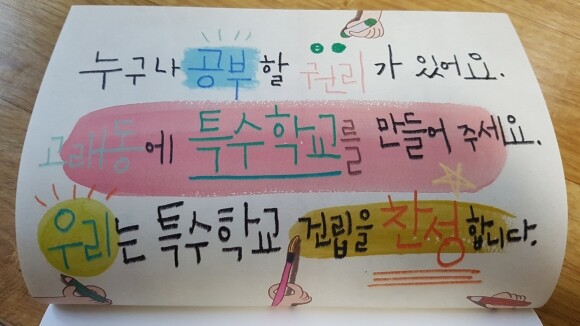 누구나 공부할 권리가 있어요.
고래동에 특수학교를 만들어 주세요.
우리는 특수학교 건립을 찬성합니다.